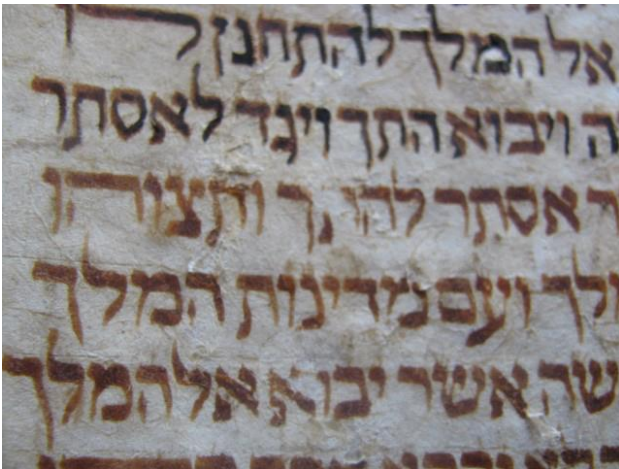 אל המלך להתחנן ל
ה ויבוא התך ויגד לאסתר
ר אסתר להתך ותצוהו
ולך ועם מדינות המלך
שה אשר יבוא אל המלך